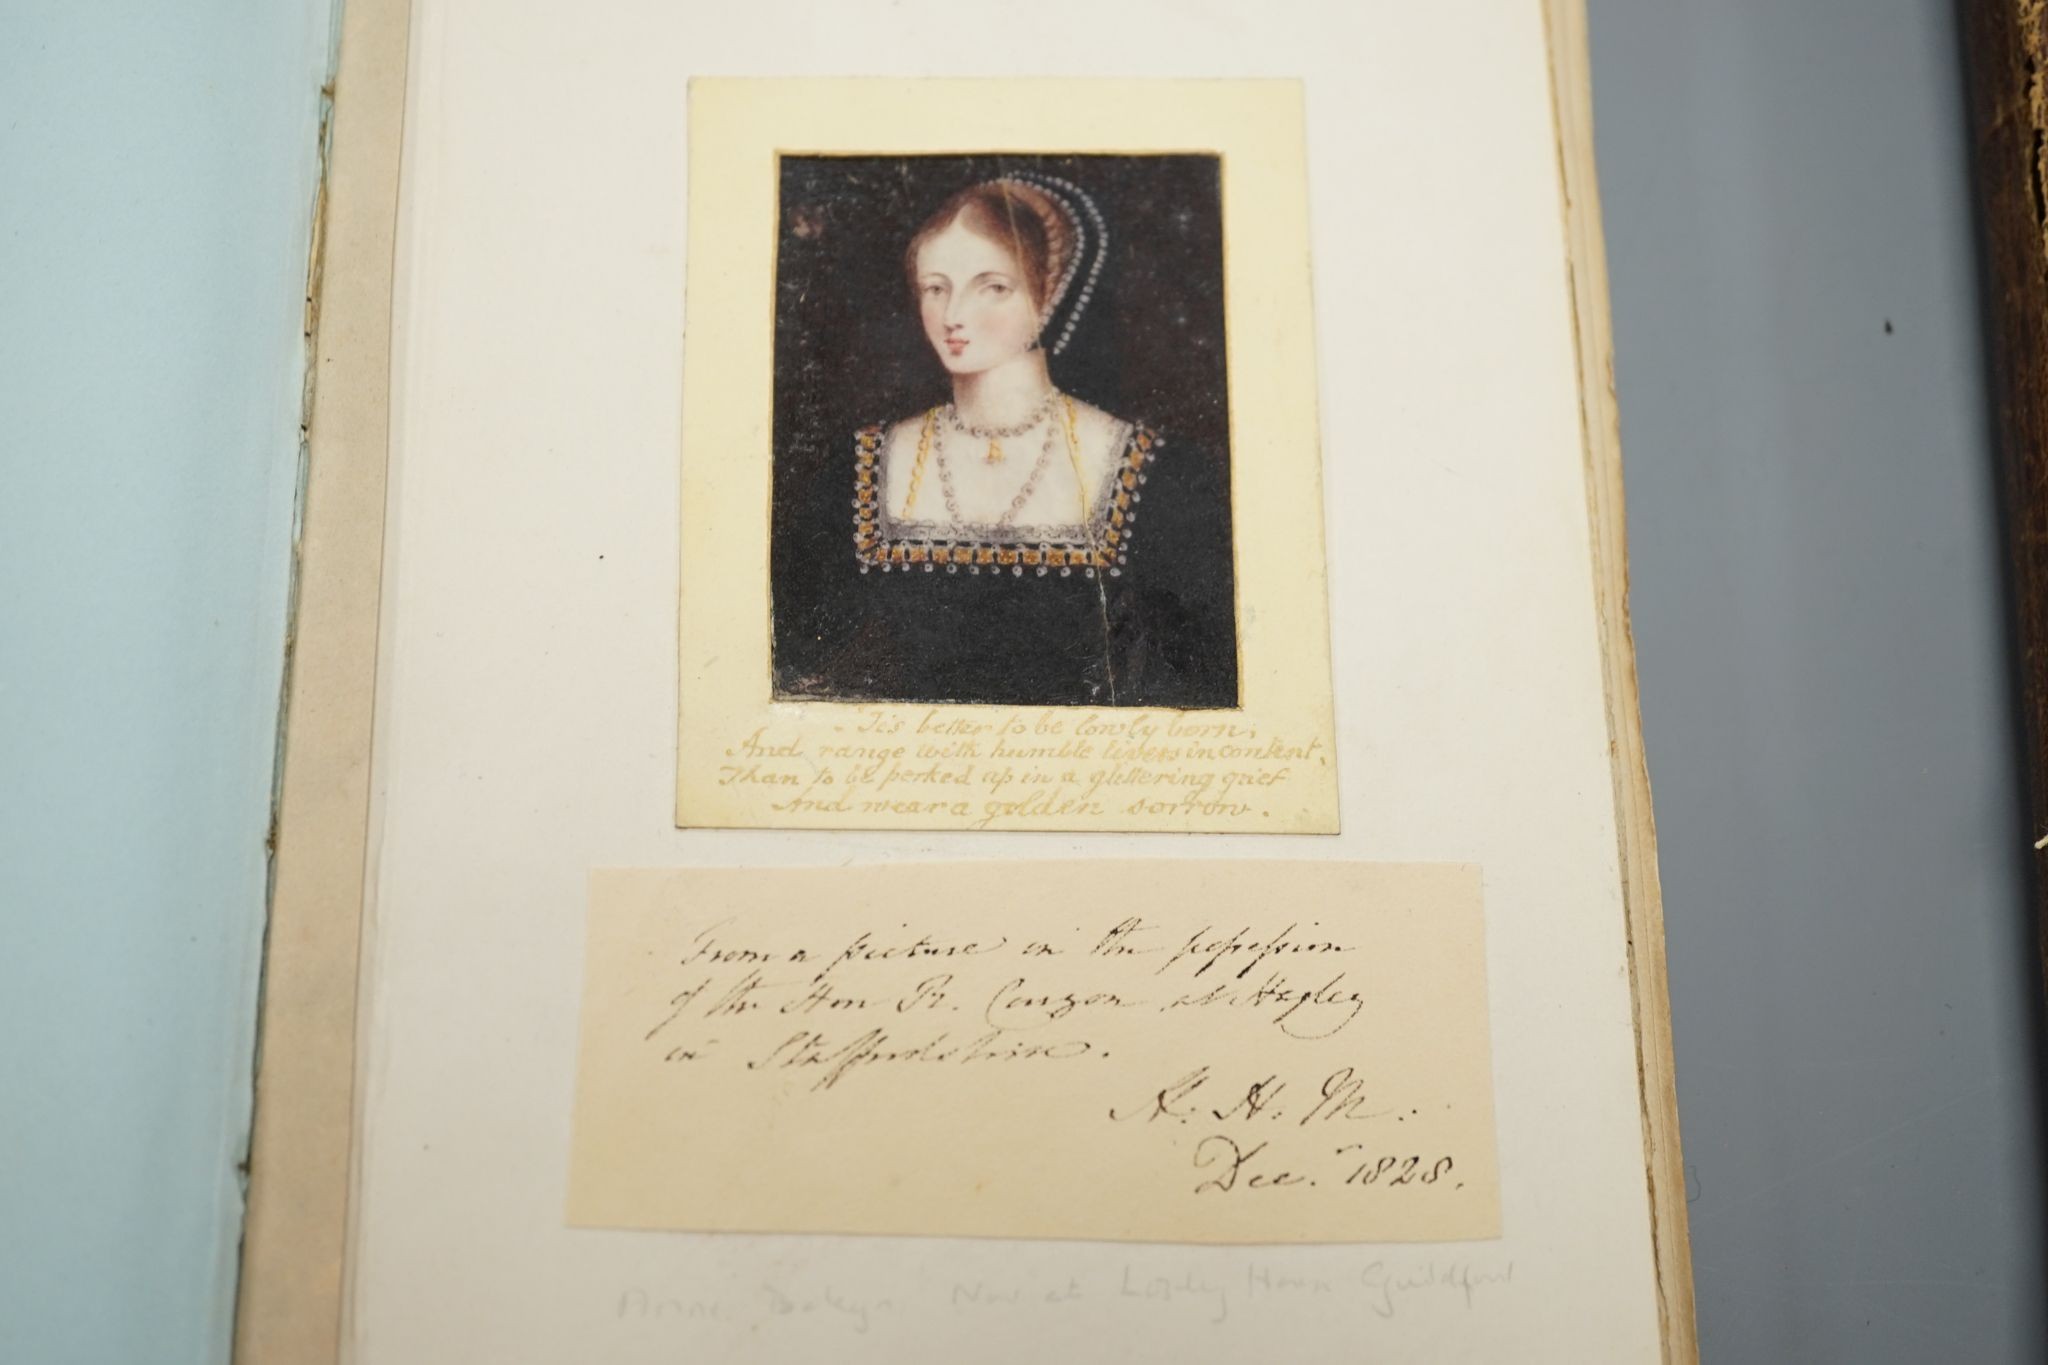 'Tis better to be lowly born,
And range with humble livers in content,
Than to be perked up in a glittering grief
And wear a golden sorrow.
From a picture in the possession
of the Hon R. Curzon at Hagley
in Staffordshire.
H. H. M.
Decr. 1828.
Anne Boleyn Now at Loseley House Guildford